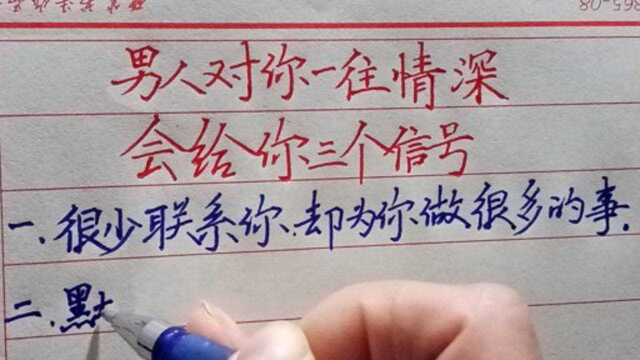 男人对你一往情深
会给你三个信号
一、很少联系你、却为你做很多的事.
二、默